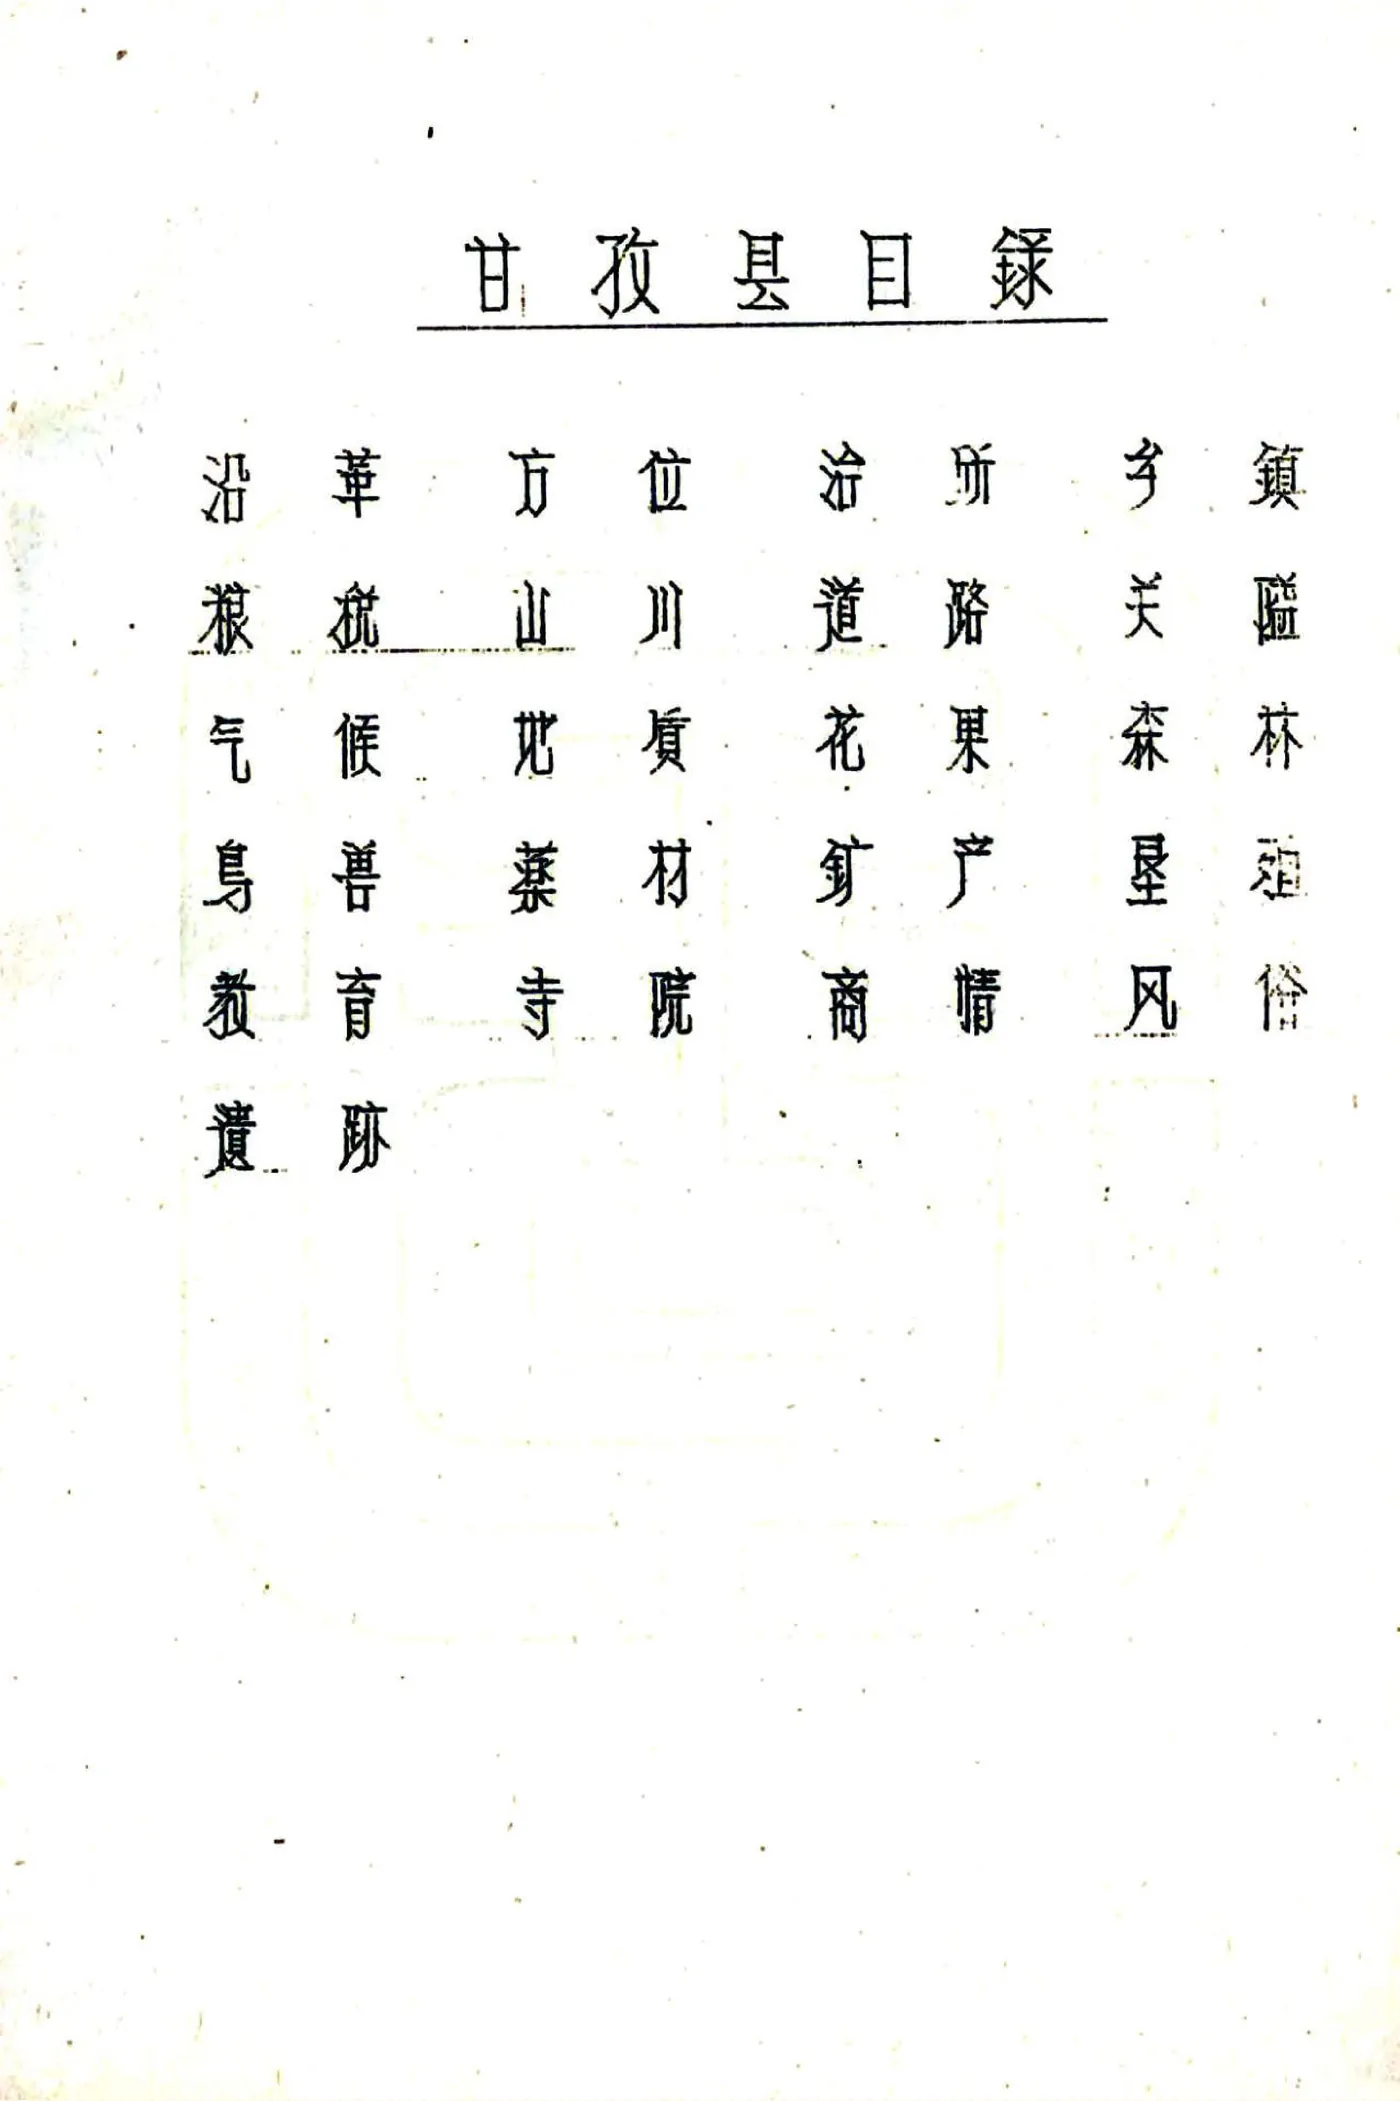 甘孜县目錄
沿革 方位 治所 乡鎮
粮税 山川 道路 关隘
气候 地質 花果 森林
鳥兽 藥材 釒广产 垦殖
教育 寺院 商情 风俗
遺跡